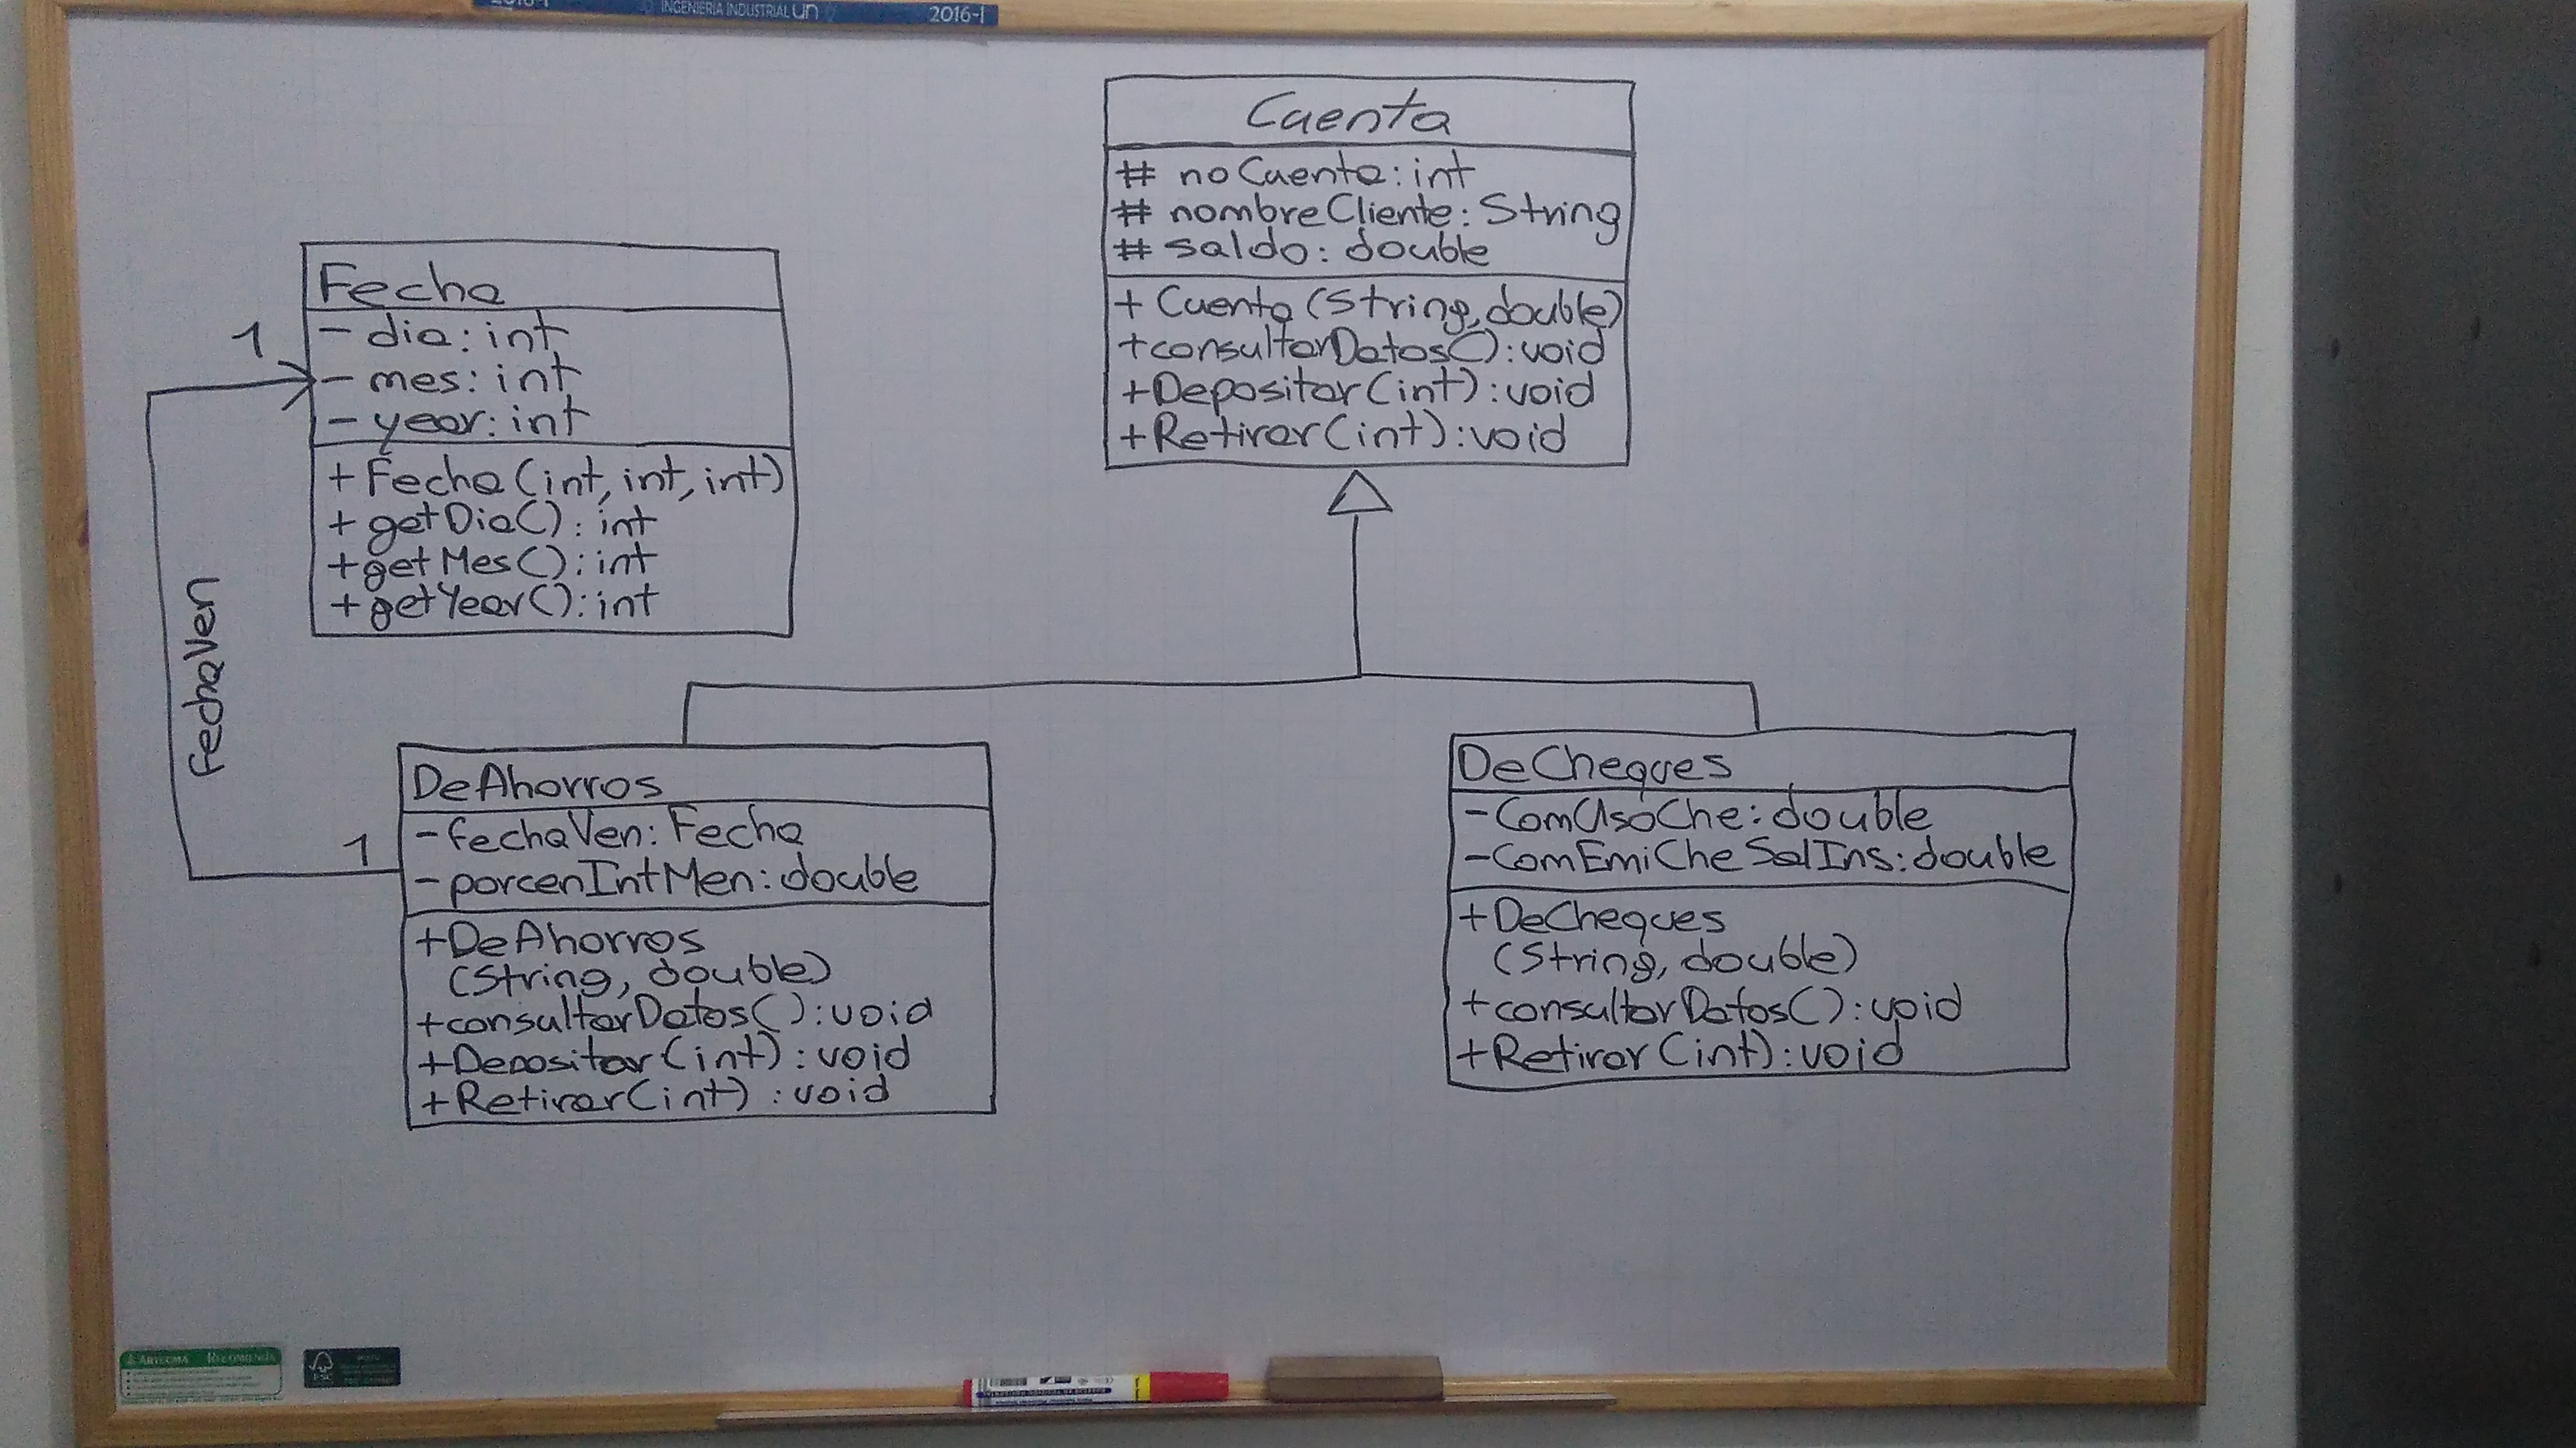 INGENIERÍA INDUSTRIAL un
2016-I
Cuenta
# noCuenta: int
# nombreCliente: String
# saldo: double
+ Cuenta (String, double)
+consultarDatos(): void
+Depositar(int): void
+Retirar(int): void
Fecha
- dia: int
- mes: int
- year: int
+ Fecha (int, int, int)
+ getDia(): int
+ getMes(): int
+ getYear(): int
1
fechaVen
1
DeAhorros
- fechaVen: Fecha
- porcenIntMen: double
+DeAhorros
(String, double)
+consultarDatos(): void
+Depositar(int): void
+Retirar(int): void
DeCheques
-ComUsoChe: double
-ComEmiCheSalIns: double
+DeCheques
(String, double)
+consultarDatos(): void
+Retirar(int): void
ARTECMA
FSC